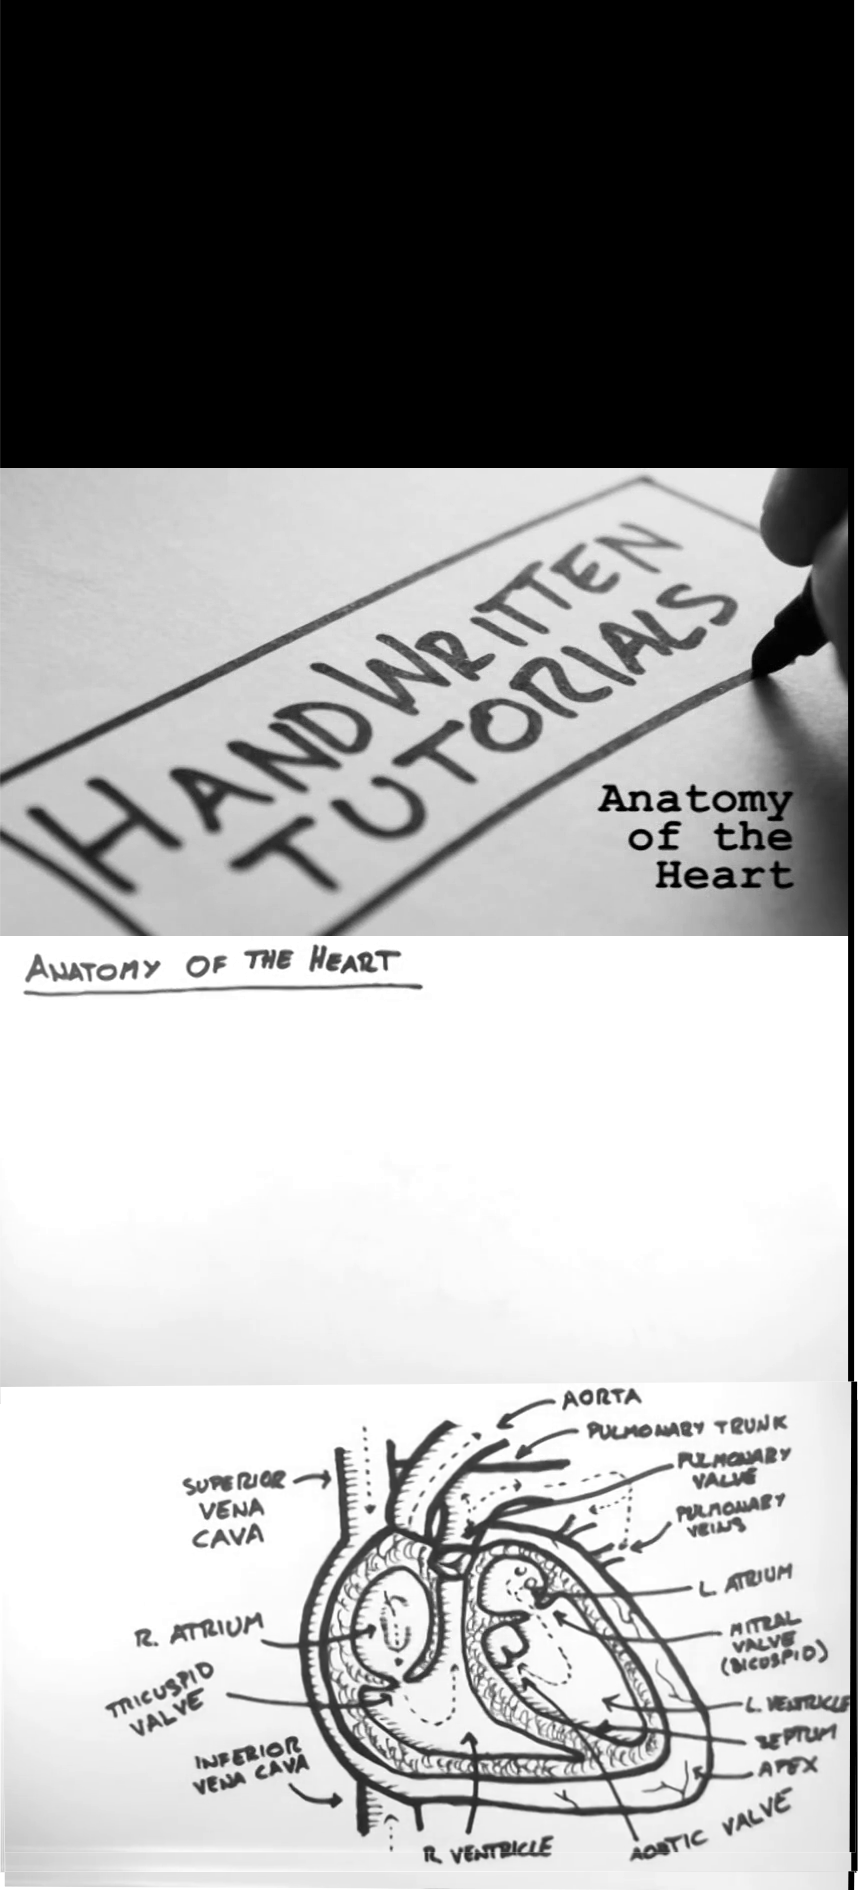 HANDWRITTEN
TUTORIALS
Anatomy
of the
Heart
ANATOMY OF THE HEART
AORTA
PULMONARY TRUNK
PULMONARY
VALVE
SUPERIOR
VENA
CAVA
PULMONARY
VEINS
L. ATRIUM
R. ATRIUM
MITRAL
VALVE
(BICUSPID)
TRICUSPID
VALVE
L. VENTRICLE
SEPTUM
INFERIOR
VENA CAVA
APEX
AORTIC VALVE
R. VENTRICLE